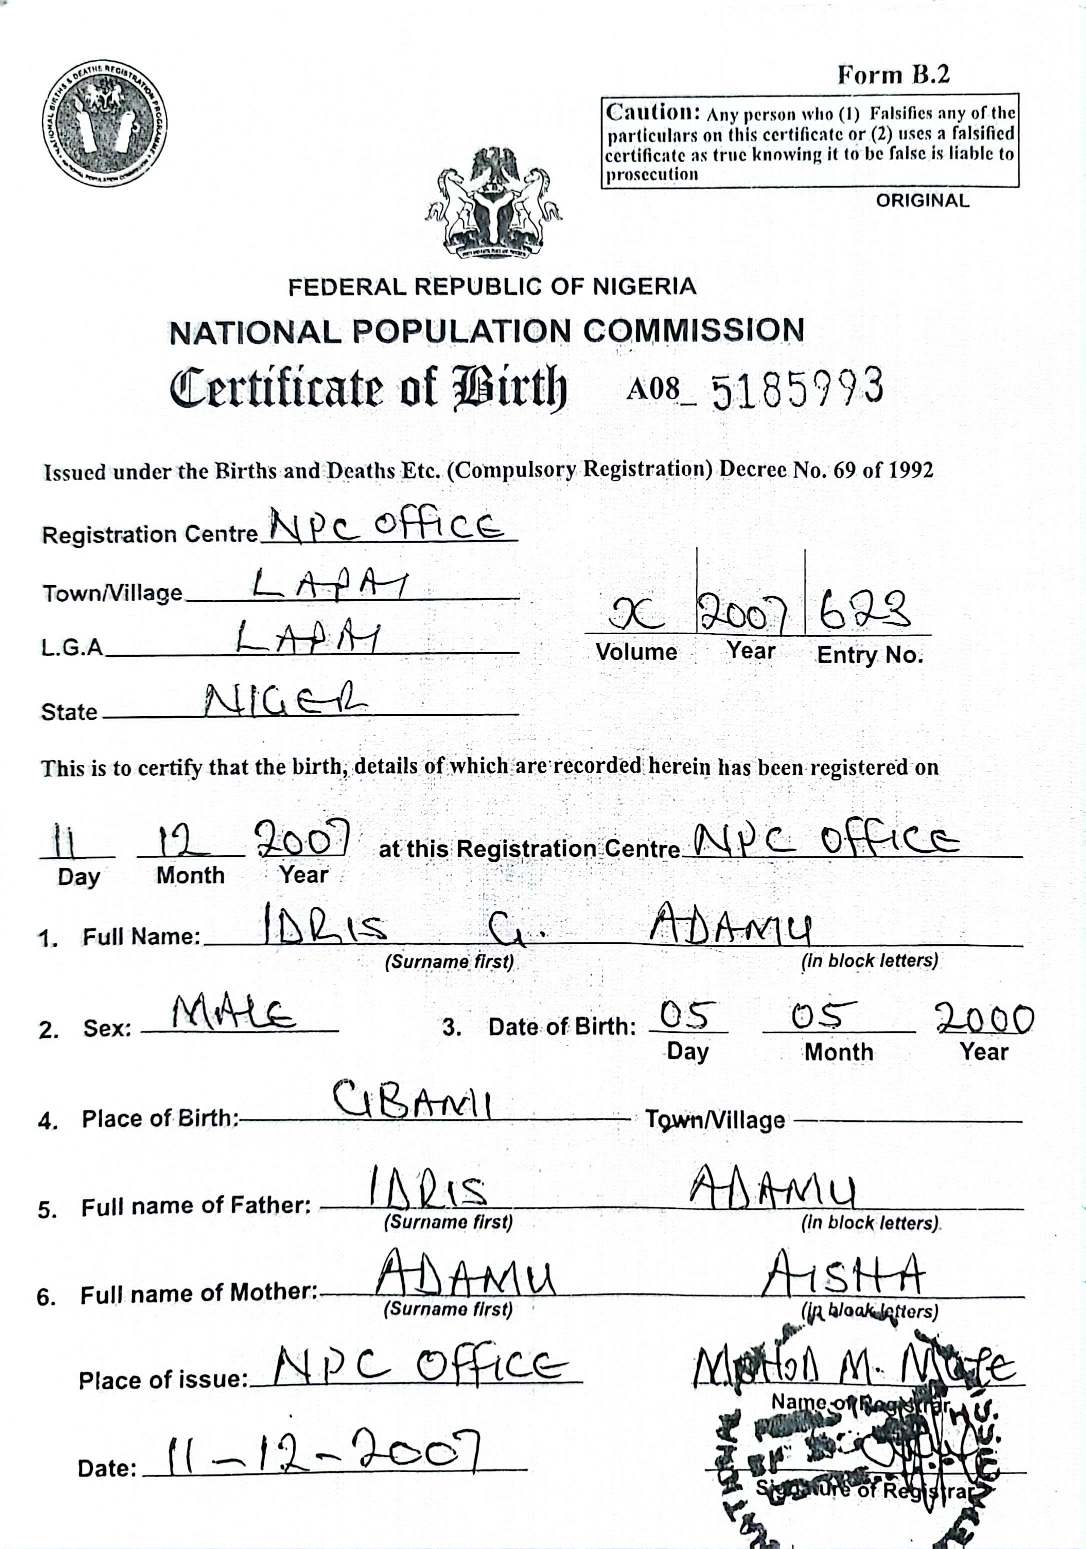 NATIONAL BIRTHS & DEATHS REGISTRATION PROGRAMME
Form B.2
Caution: Any person who (1) Falsifies any of the
particulars on this certificate or (2) uses a falsified
certificate as true knowing it to be false is liable to
prosecution
ORIGINAL
FEDERAL REPUBLIC OF NIGERIA
NATIONAL POPULATION COMMISSION
Certificate of Birth A08_ 5185993
Issued under the Births and Deaths Etc. (Compulsory Registration) Decree No. 69 of 1992
Registration Centre NPC OFFICE
Town/Village LAPAI
L.G.A LAPAI
X 2007 623
Volume Year Entry No.
State NIGER
This is to certify that the birth, details of which are recorded herein has been registered on
11 12 2007 at this Registration Centre NPC OFFICE
Day Month Year
1. Full Name: IDRIS G. ADAMU
(Surname first) (in block letters)
2. Sex: MALE 3. Date of Birth: 05 05 2000
Day Month Year
4. Place of Birth: GBAMI Town/Village
5. Full name of Father: IDRIS ADAMU
(Surname first) (in block letters)
6. Full name of Mother: ADAMU AISHA
(Surname first) (in block letters)
Place of issue: NPC OFFICE M.
Name of Registrar
Date: 11-12-2007
Signature of Registrar